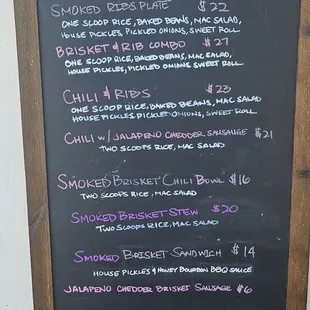 SMOKED RIBS PLATE $22
ONE SCOOP RICE, BAKED BEANS, MAC SALAD,
HOUSE PICKLES, PICKLED ONIONS, SWEET ROLL
BRISKET & RIB COMBO $27
ONE SCOOP RICE, BAKED BEANS, MAC SALAD,
HOUSE PICKLES, PICKLED ONIONS SWEET ROLL
CHILI & RIBS $23
ONE SCOOP RICE, BAKED BEANS, MAC SALAD
HOUSE PICKLES, PICKLED ONIONS, SWEET ROLL
CHILI W/ JALAPENO CHEDDER SAUSAGE $21
TWO SCOOPS RICE, MAC SALAD
SMOKED BRISKET CHILI BOWL $16
TWO SCOOPS RICE, MAC SALAD
SMOKED BRISKET STEW $20
TWO SCOOPS RICE, MAC SALAD
SMOKED BRISKET SANDWICH $14
HOUSE PICKLES & HONEY BOURBON BBQ SAUCE
JALAPENO CHEDDER BRISKET SAUSAGE $6